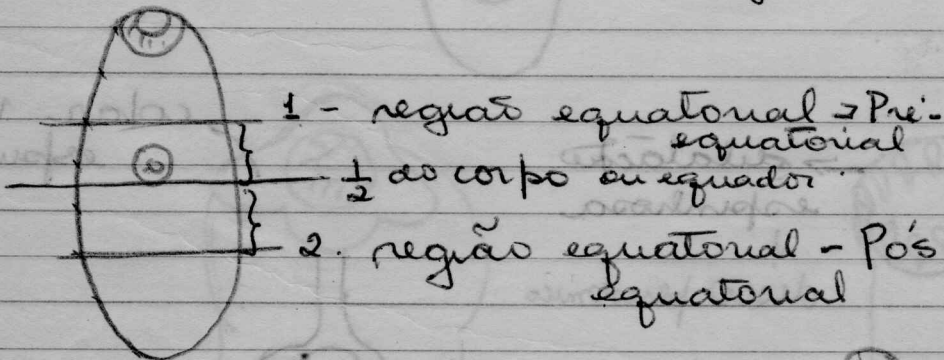 1 - região equatorial → Pré-
equatorial
1/2 do corpo ou equador.
2. região equatorial - Pós
equatorial